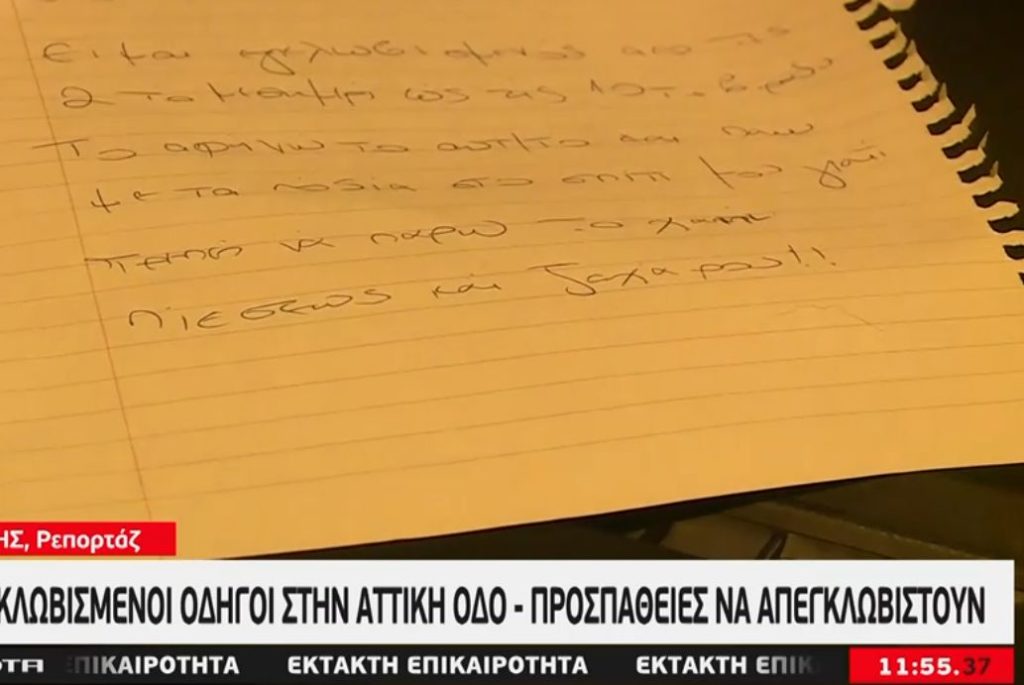 Ειμαι εγκλωβισμενος απο τις
2 το μεσημερι ως τις 10 το βραδυ
Το αφηνω το αυτ/το και παω
με τα ποδια στο σπιτι μου γιατι
πρεπει να παρω το χαπι
πιεσεως και ζαχαρου!!
ΗΣ, Ρεπορτάζ
ΚΛΩΒΙΣΜΕΝΟΙ ΟΔΗΓΟΙ ΣΤΗΝ ΑΤΤΙΚΗ ΟΔΟ - ΠΡΟΣΠΑΘΕΙΕΣ ΝΑ ΑΠΕΓΚΛΩΒΙΣΤΟΥΝ
ΟΤΑ ΠΙΚΑΙΡΟΤΗΤΑ ΕΚΤΑΚΤΗ ΕΠΙΚΑΙΡΟΤΗΤΑ ΕΚΤΑΚΤΗ ΕΠΙΚ 11:55.37